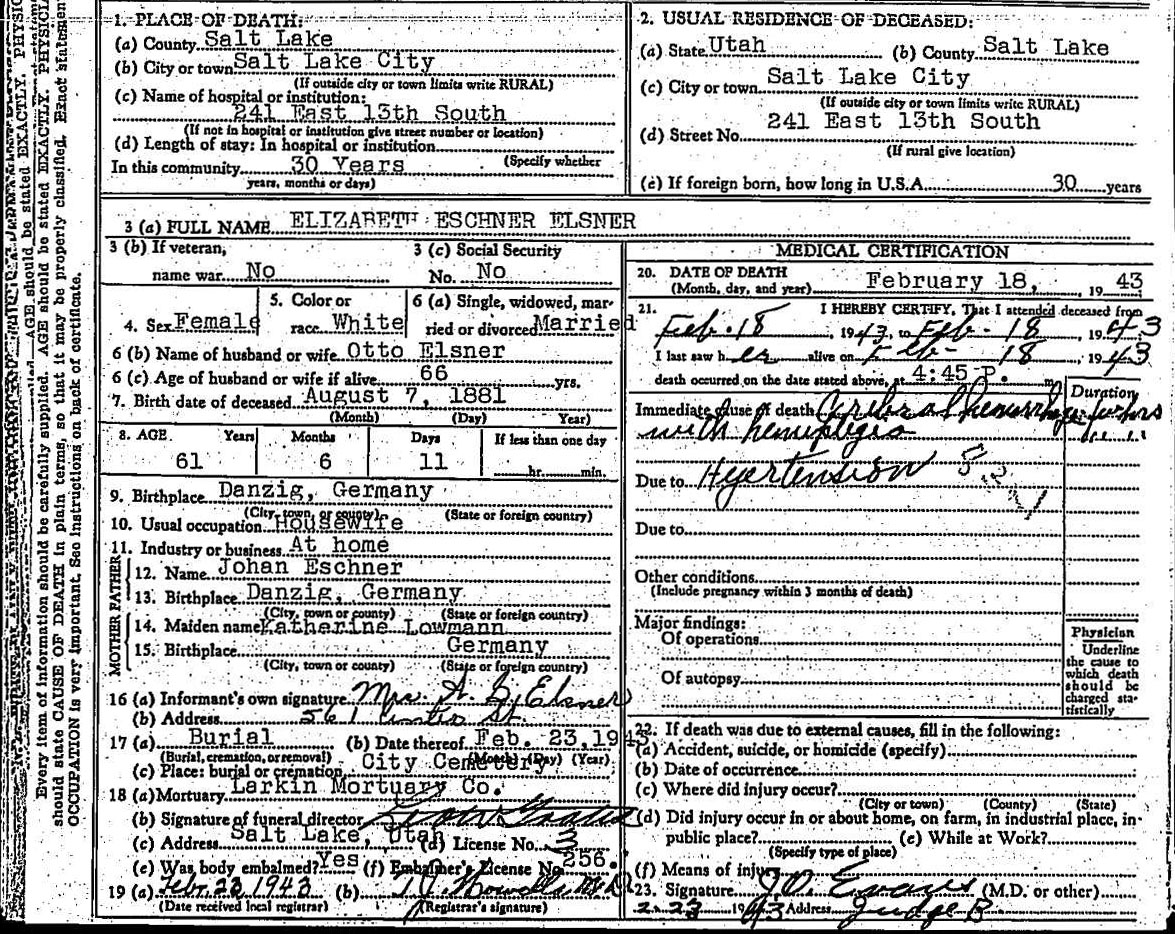 1. PLACE OF DEATH:
(a) County Salt Lake
(b) City or town Salt Lake City
(If outside city or town limits write RURAL)
(c) Name of hospital or institution:
241 East 13th South
(If not in hospital or institution give street number or location)
(d) Length of stay: In hospital or institution
(Specify whether
In this community 30 Years
years, months or days)
2. USUAL RESIDENCE OF DECEASED:
(a) State Utah (b) County Salt Lake
(c) City or town Salt Lake City
(If outside city or town limits write RURAL)
(d) Street No. 241 East 13th South
(If rural give location)
(e) If foreign born, how long in U.S.A. 30 years
3 (a) FULL NAME ELIZABETH ESCHNER ELSNER
3 (b) If veteran, 3 (c) Social Security
name war No No. No
4. Sex Female 5. Color or race White 6 (a) Single, widowed, married or divorced Married
6 (b) Name of husband or wife Otto Elsner
6 (c) Age of husband or wife if alive 66 yrs.
7. Birth date of deceased August 7, 1881
(Month) (Day) Year)
8. AGE Years Months Days If less than one day
61 6 11 hr. min.
9. Birthplace Danzig, Germany
(City, town, or county) (State or foreign country)
10. Usual occupation Housewife
11. Industry or business At home
FATHER
12. Name Johan Eschner
13. Birthplace Danzig, Germany
(City, town or county) (State or foreign country)
MOTHER
14. Maiden name Katherine Lowmann
15. Birthplace Germany
(City, town or county) (State or foreign country)
16 (a) Informant's own signature Mrs. A. G. Elsner
(b) Address 561 St.
17 (a) Burial (b) Date thereof Feb. 23, 194
(Burial, cremation, or removal) (Month) (Day) (Year)
(c) Place: burial or cremation City Cemetery
18 (a) Mortuary Larkin Mortuary Co.
(b) Signature of funeral director
(c) Address Salt Lake, Utah (d) License No. 3
(e) Was body embalmed? Yes (f) Embalmer's License No. 256.
19 (a) Febr. 23 1943 (b) M.D.
(Date received local registrar) (Registrar's signature)
MEDICAL CERTIFICATION
20. DATE OF DEATH
(Month, day, and year) February 18, 19 43
21. I HEREBY CERTIFY, That I attended deceased from
Feb. 18 1943, to Feb - 18 1943
I last saw her alive on Feb - 18, 1943
death occurred on the date stated above, at 4:45 P. m.
Duration
Immediate cause of death Cerebral hemorrhage
with hemiplegia
Due to Hyertension
Due to
Other conditions
(Include pregnancy within 3 months of death)
Major findings:
Of operations
Of autopsy
Physician
Underline
the cause to
which death
should be
charged sta-
tistically
22. If death was due to external causes, fill in the following:
(a) Accident, suicide, or homicide (specify)
(b) Date of occurrence
(c) Where did injury occur?
(City or town) (County) (State)
(d) Did injury occur in or about home, on farm, in industrial place, in
public place? (e) While at Work?
(Specify type of place)
(f) Means of injury
23. Signature J.O. Evans (M.D. or other)
2-23 1943 Address Judge B
Every item of information should be carefully supplied. AGE should be stated EXACTLY. PHYSICIA
should state CAUSE OF DEATH in plain terms, so that it may be properly classified. Exact statemen
OCCUPATION is very important. See instructions on back of certificate.